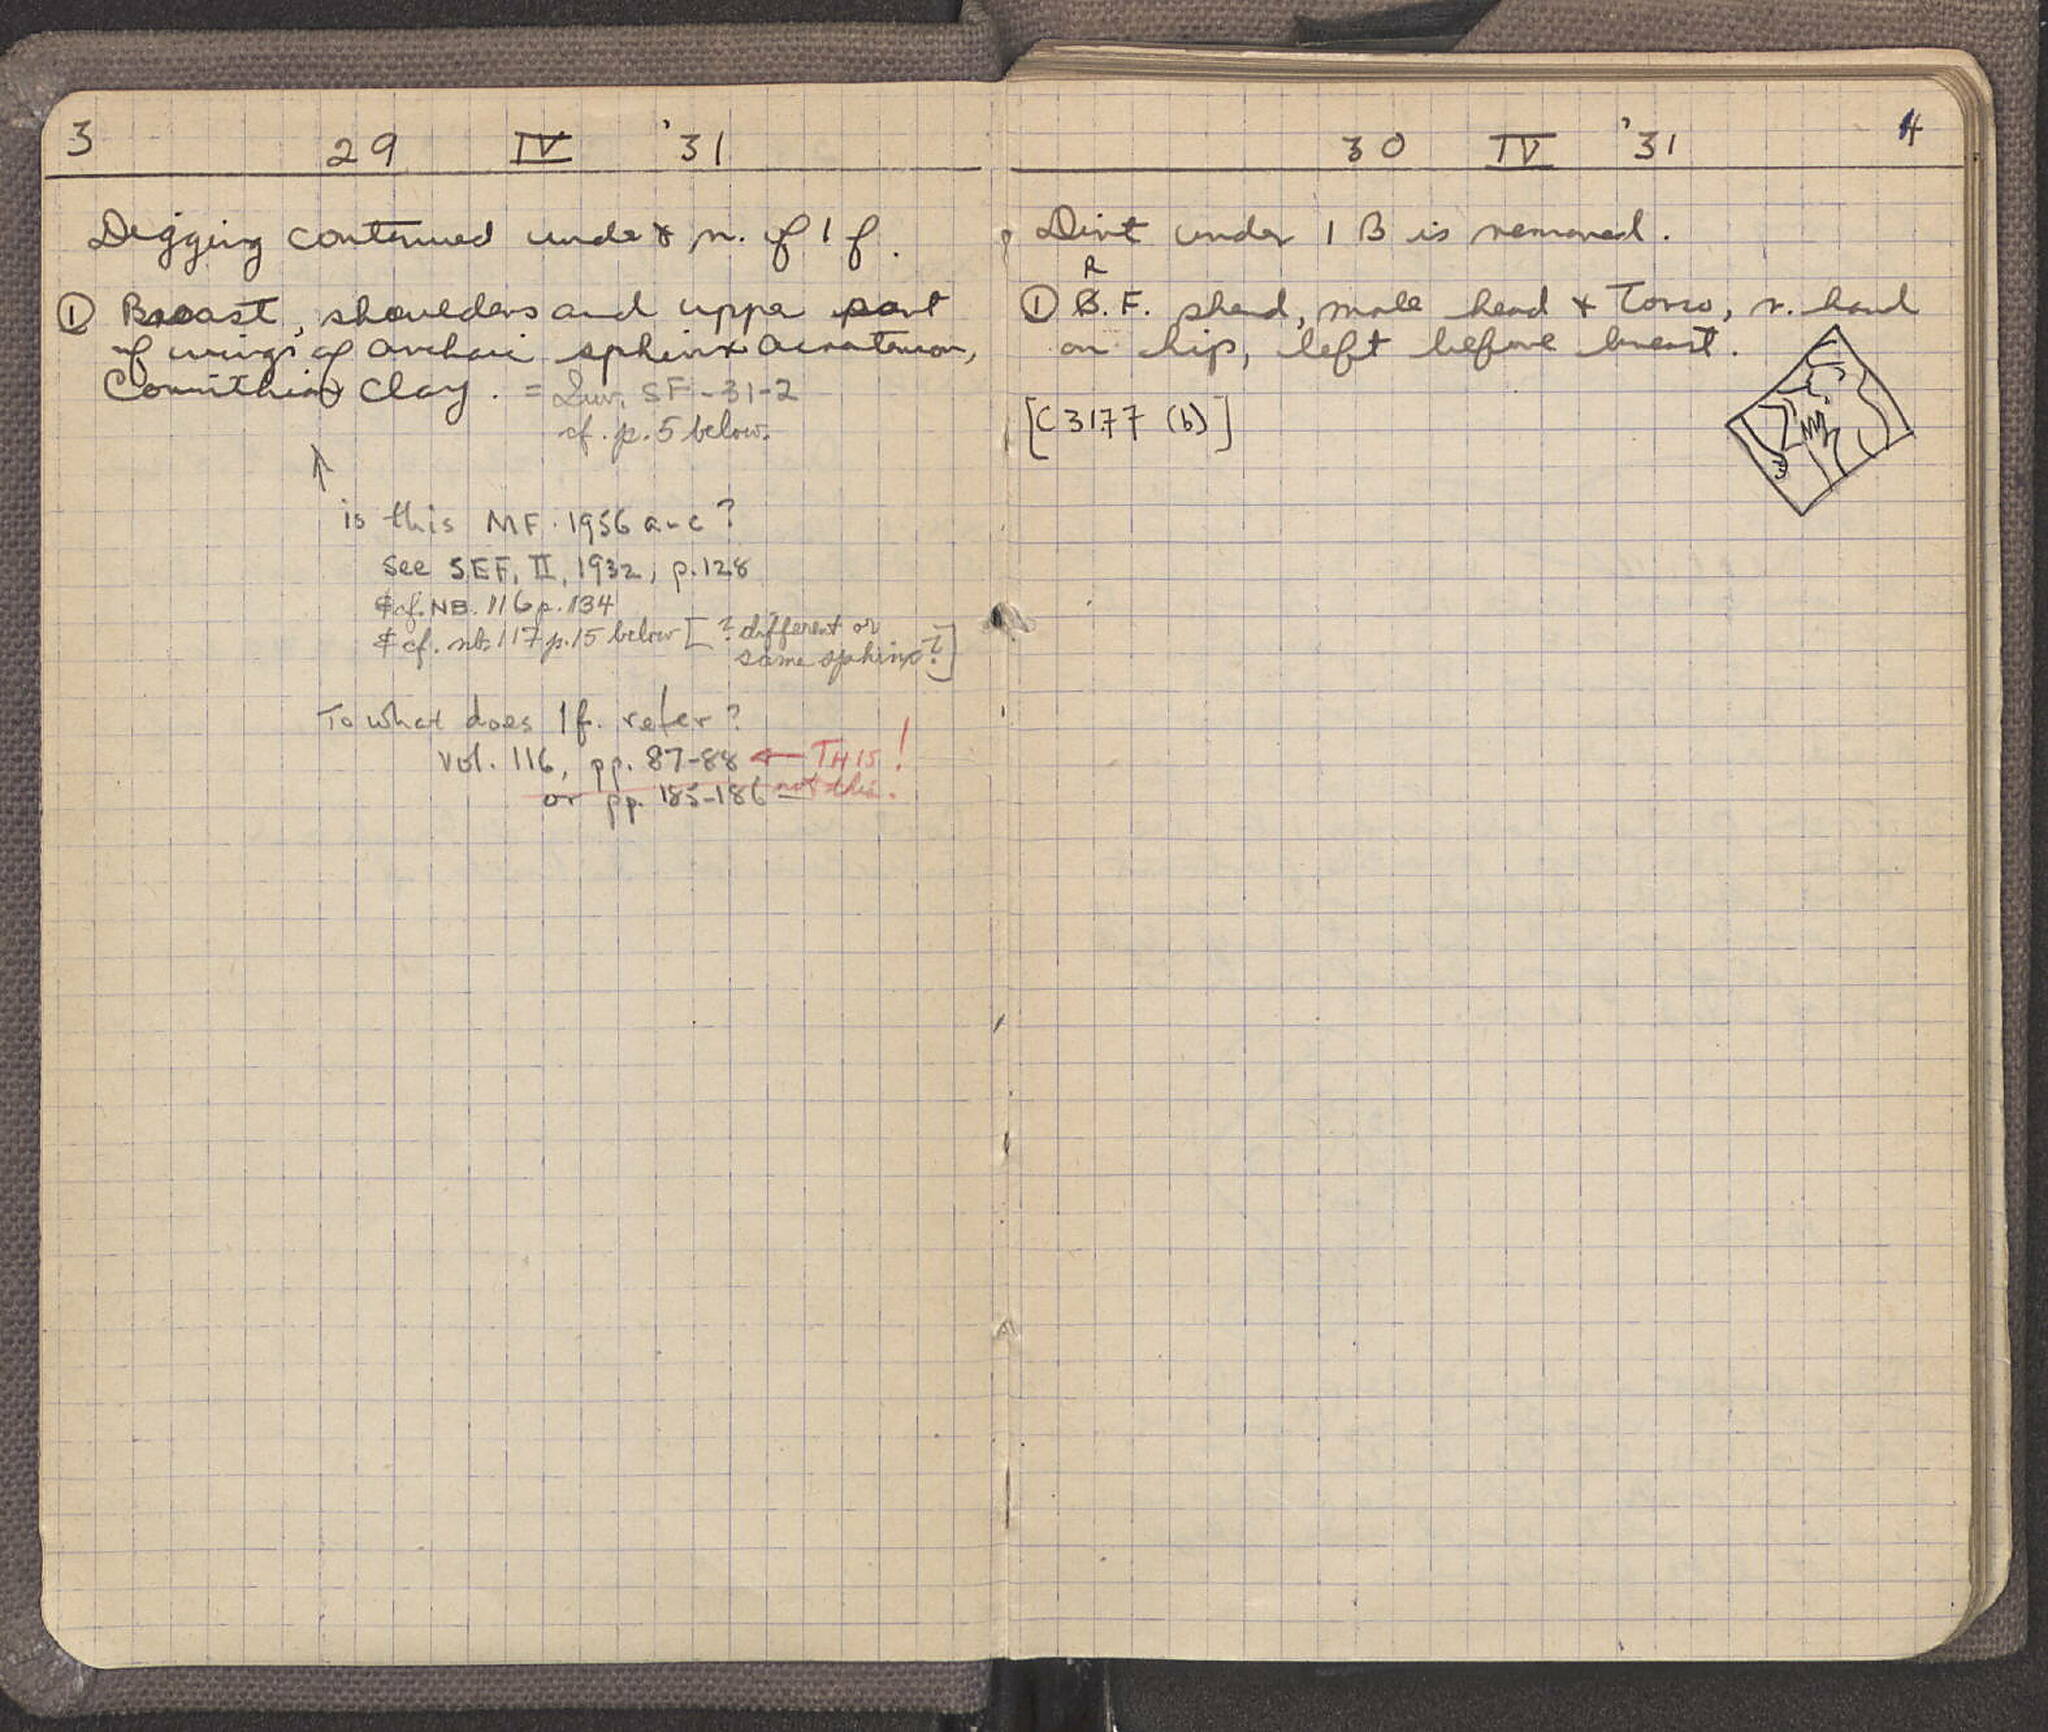 3 29 IV '31
Digging continued under & n. of 1 f.
① Breast, shoulders and upper part
of wings of archaic sphinx acroterion,
Corinthian clay. = Inv. SF-31-2
cf. p. 5 below.
↑
is this MF. 1956 a-c?
see SEF, II, 1932, p. 128
& cf. NB. 116 p. 134
& cf. nb. 117 p. 15 below [? different or
same sphinx?]
To what does 1 f. refer?
vol. 116, pp. 87-88 ← THIS!
or pp. 185-186 — not this.
30 IV '31 4
Dirt under 1 B is removed.
R
① B. F. sherd, male head & torso, r. hand
on hip, left before breast.
[C 31.77 (b)]